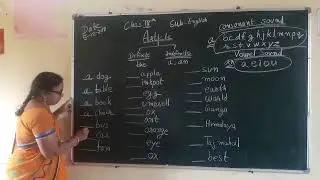 Date
Class IIIth Sub. English
Article
Definite
Indefinite
the
a, an
consonant sound
a
b c d f g h j k l m n p q
r s t v w x y z
Vowel Sound
an
a e i o u
a dog
a table
a book
a chair
bus
car
fan
apple
inkpot
egg
umbrell
ox
ant
orange
eye
ox
sun
moon
earth
world
Ganga
Himalaya
Taj mahal
best